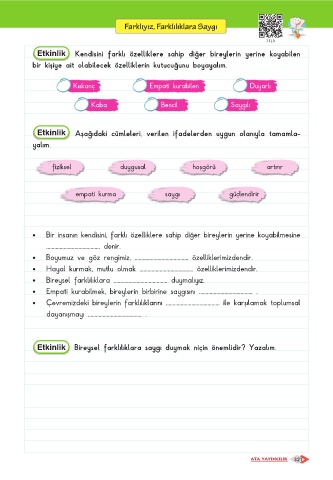 Farklıyız, Farklılıklara Saygı
Etkinlik Kendisini farklı özelliklere sahip diğer bireylerin yerine koyabilen
bir kişiye ait olabilecek özelliklerin kutucuğunu boyayalım.
Kıskanç Empati kurabilen Duyarlı
Kaba Bencil Saygılı
Etkinlik Aşağıdaki cümleleri, verilen ifadelerden uygun olanıyla tamamla-
yalım.
fiziksel duygusal hoşgörü artırır
empati kurma saygı güçlendirir
• Bir insanın kendisini, farklı özelliklere sahip diğer bireylerin yerine koyabilmesine
........................ denir.
• Boyumuz ve göz rengimiz, ........................ özelliklerimizdendir.
• Hayal kurmak, mutlu olmak ........................ özelliklerimizdendir.
• Bireysel farklılıklara ........................ duymalıyız.
• Empati kurabilmek, bireylerin birbirine saygısını ........................ .
• Çevremizdeki bireylerin farklılıklarını ........................ ile karşılamak toplumsal
dayanışmayı ........................ .
Etkinlik Bireysel farklılıklara saygı duymak niçin önemlidir? Yazalım.
ATA YAYINCILIK